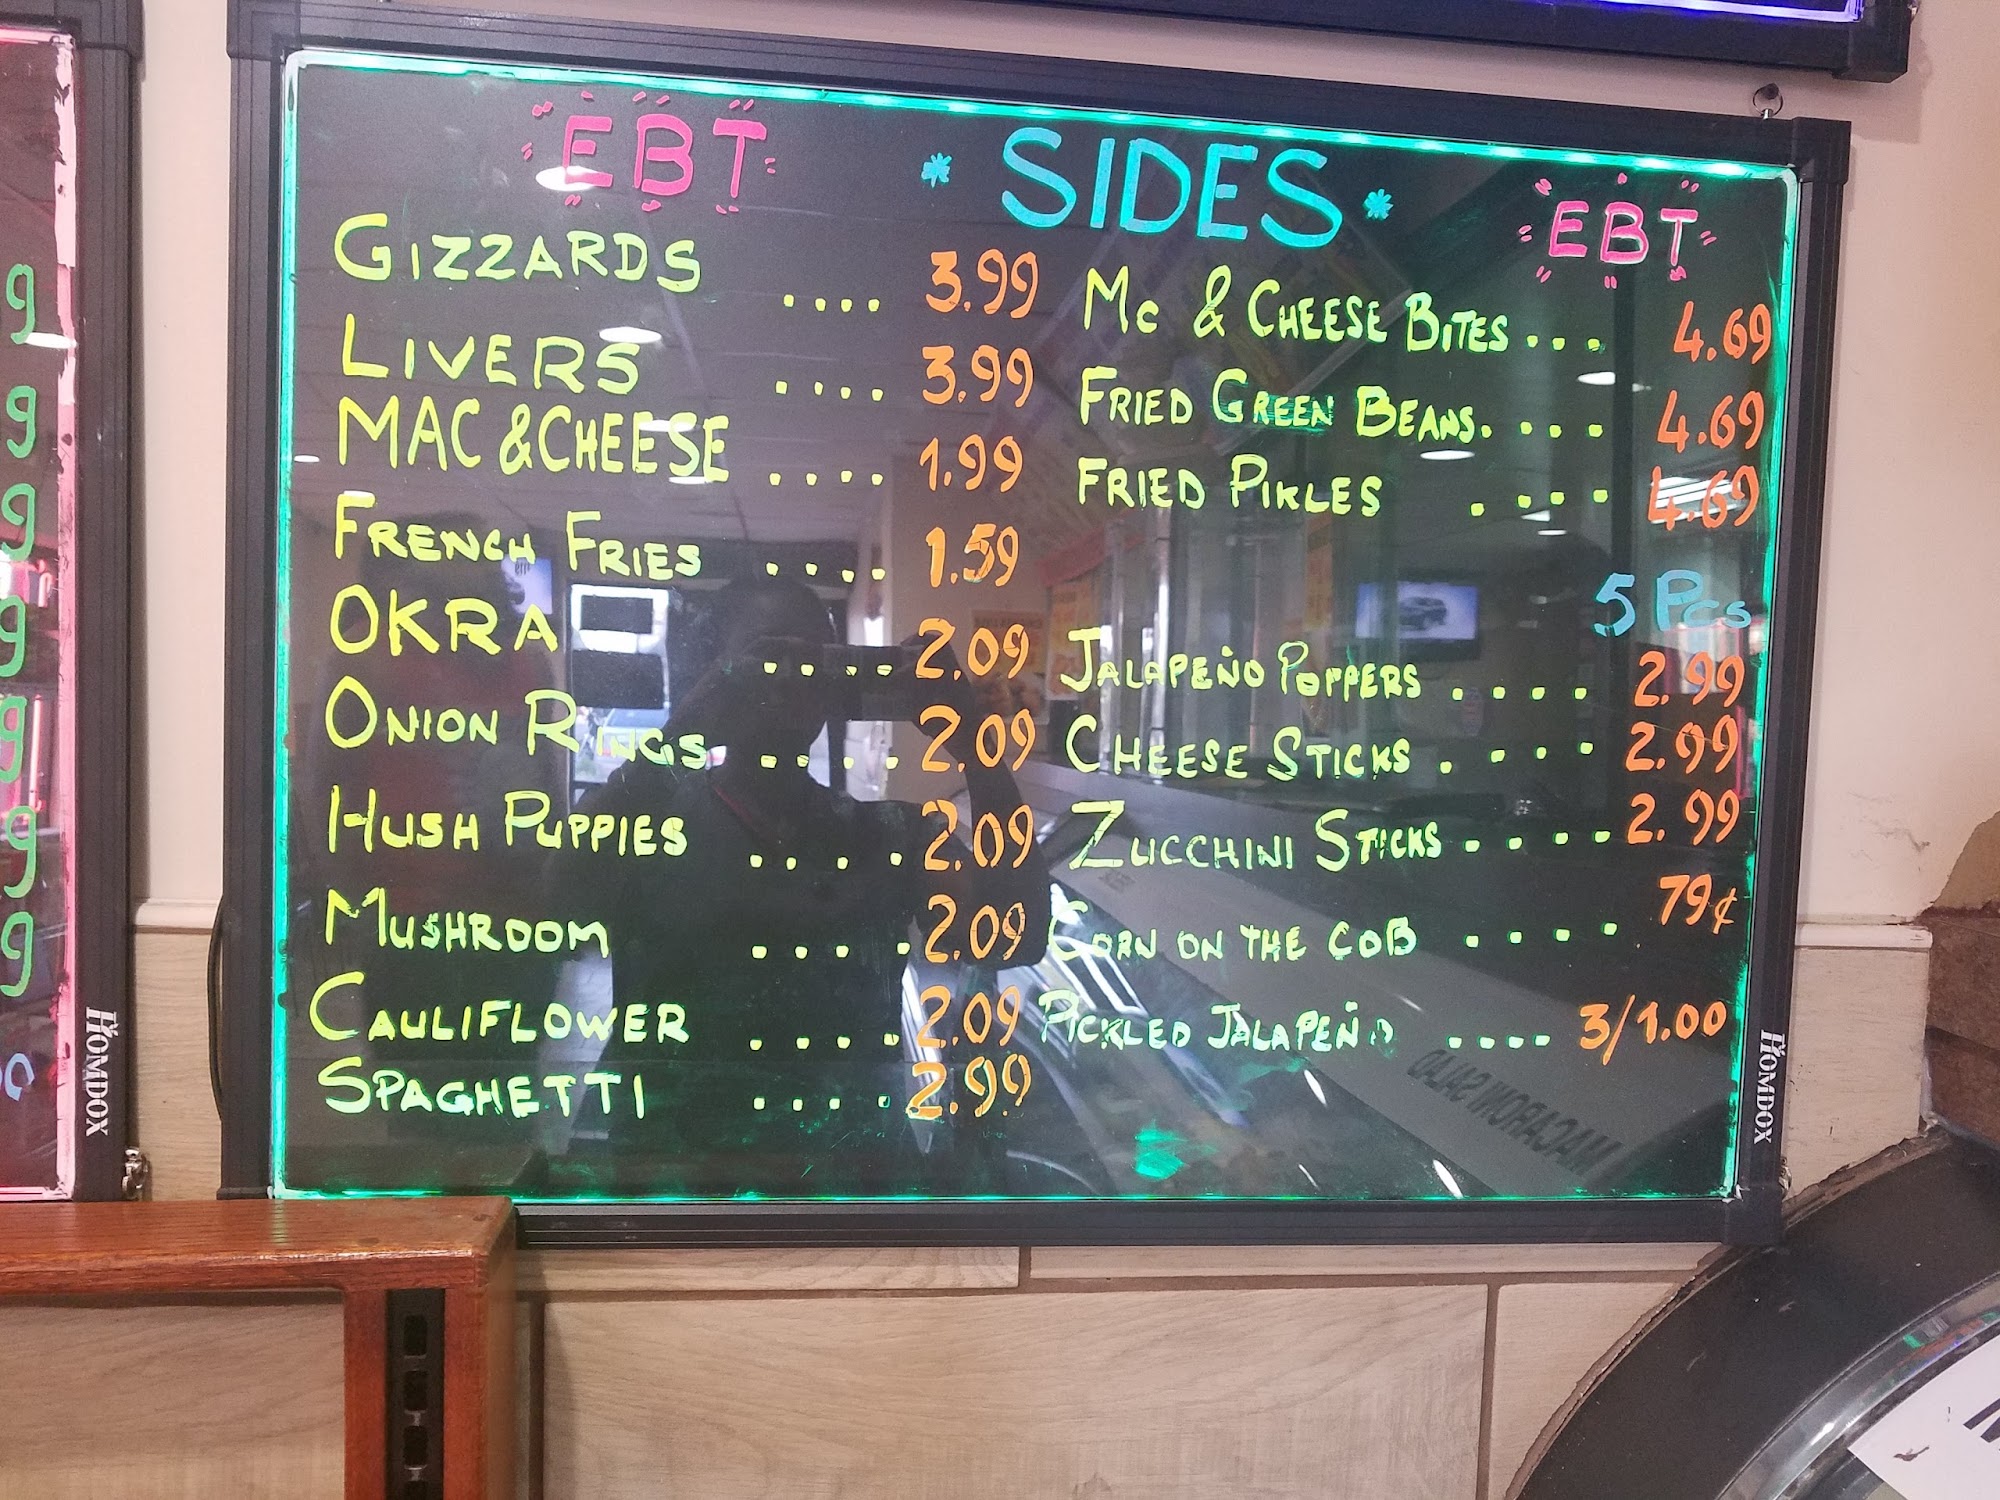 EBT
* SIDES *
EBT
GIZZARDS .... 3.99
LIVERS .... 3.99
MAC & CHEESE .... 1.99
FRENCH FRIES .... 1.59
OKRA .... 2.09
ONION RINGS .... 2.09
HUSH PUPPIES .... 2.09
MUSHROOM .... 2.09
CAULIFLOWER .... 2.09
SPAGHETTI .... 2.99
MC & CHEESE BITES ... 4.69
FRIED GREEN BEANS .... 4.69
FRIED PIKLES .... 4.69
5 PCS
JALAPEÑO POPPERS .... 2.99
CHEESE STICKS .... 2.99
ZUCCHINI STICKS .... 2.99
CORN ON THE COB .... 79¢
PICKLED JALAPEÑO .... 3/1.00
MACARONI SALAD
HOMDOX
HOMDOX